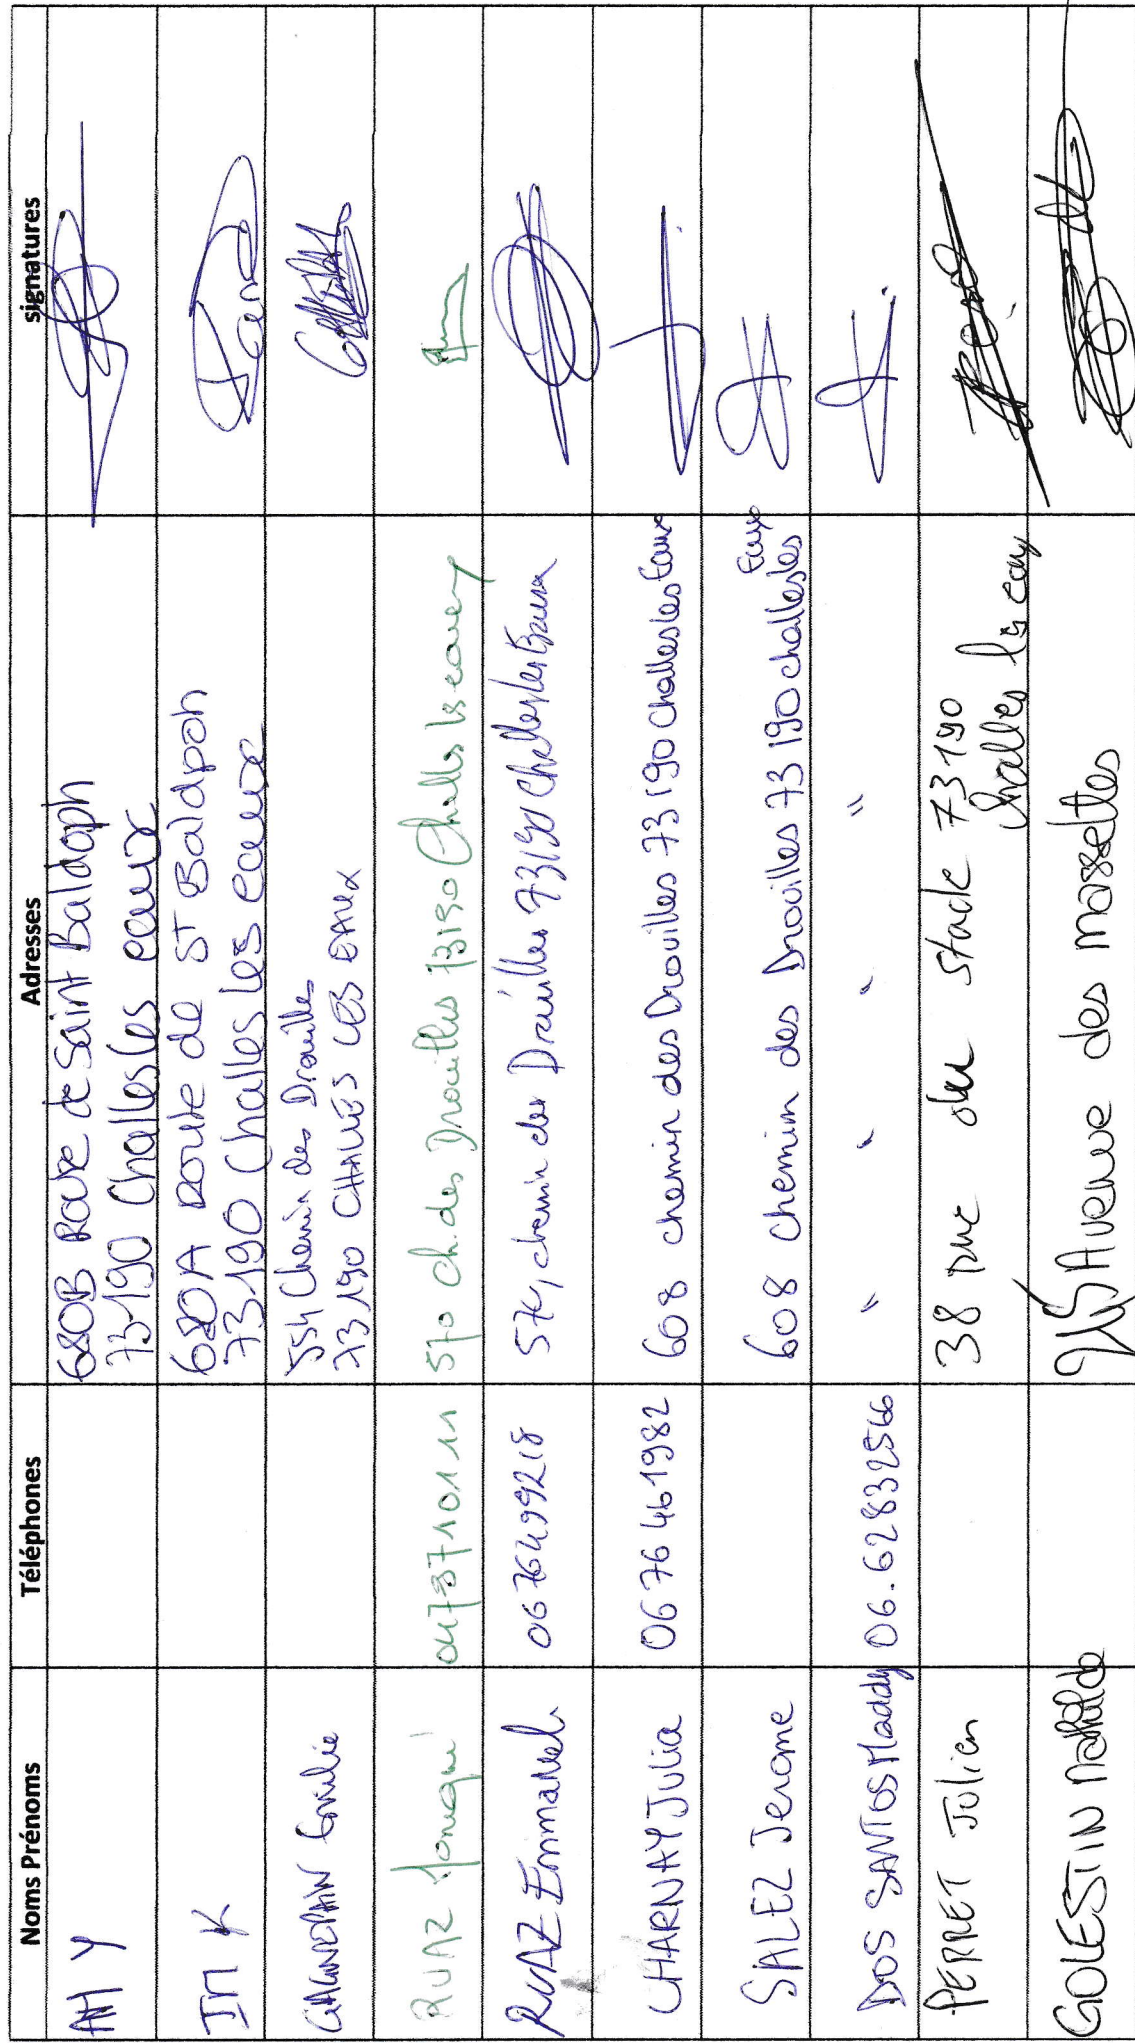 Noms Prénoms Téléphones Adresses signatures
AH Y 680B Route de Saint Baldoph
73190 Challes les eaux
JM K 680A Route de ST Baldpoh
73190 Challes les eaux
Emilie 554 Chemin des Drouilles
73190 CHALLES LES EAUX
RUAZ Monique 0479371011 570 Ch. des Drouilles 73190 Challes les eaux
RUAZ Emmanuel 0676499218 chemin des Drouilles 73190 Challes les Eaux
CHARNAY Julia 0676461982 608 chemin des Drouilles 73190 Challes les Eaux
SALEZ Jerome 608 chemin des Drouilles 73190 challes les
Eaux
DOS SANTOS Maddy 06.62832566 " " " "
PERRET Julien 38 rue du stade 73190
challes les eaux
GOLESTIN Mathilde Avenue des massettes